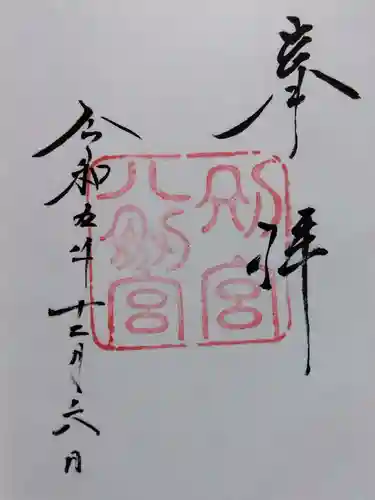 奉拝
別宮
八剱宮
令和五年十二月六日